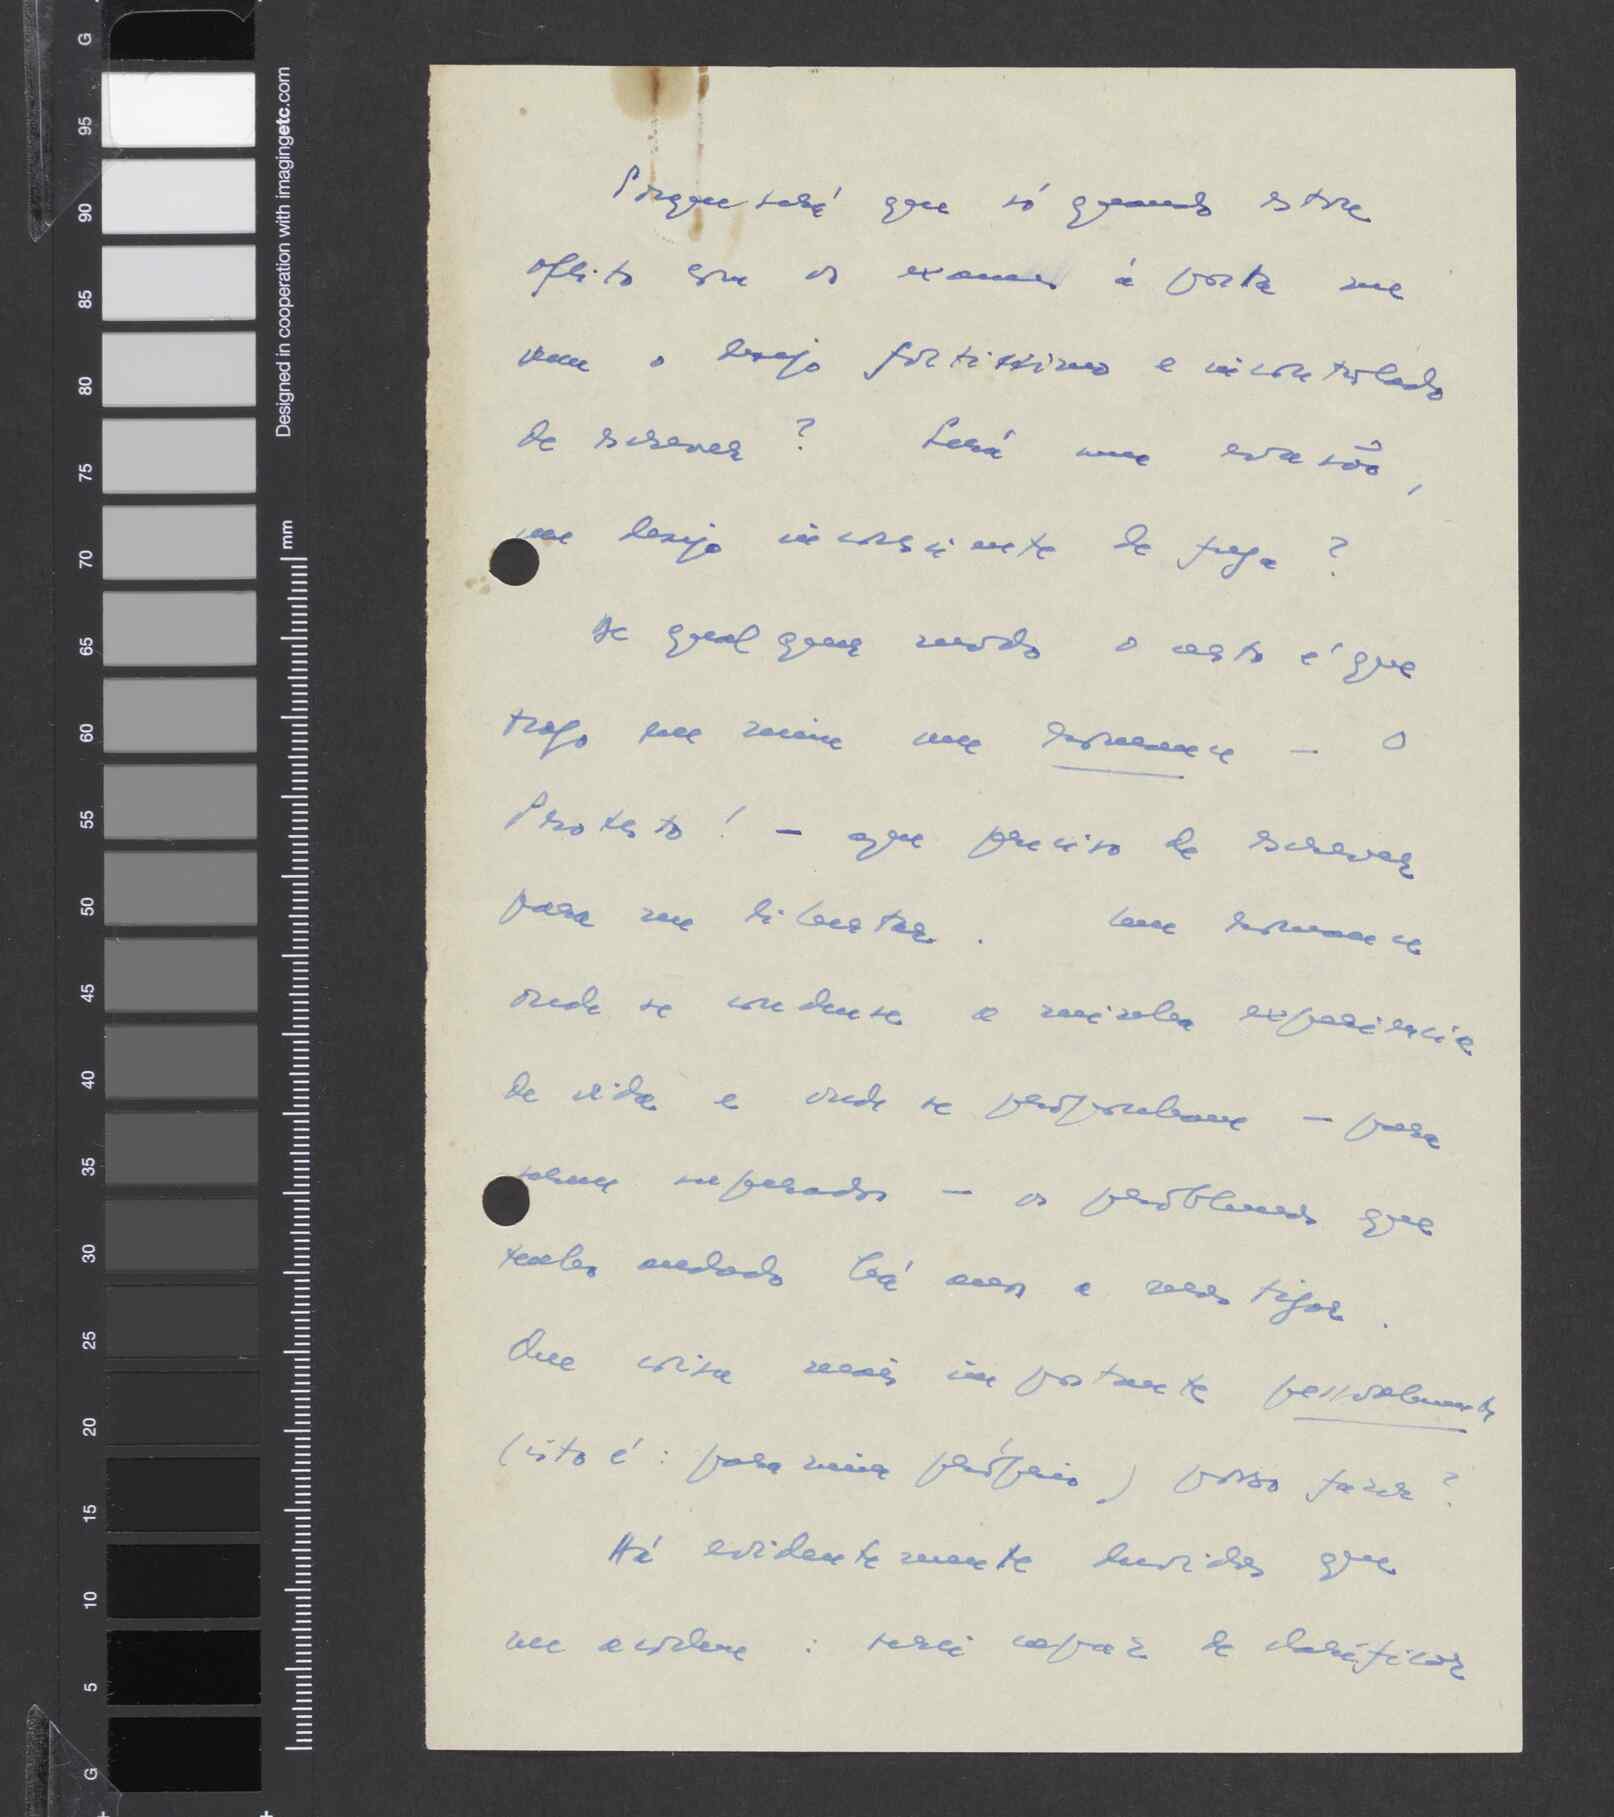 G
95
90
85
80
75
70
65
60
55
50
45
40
35
30
25
20
15
10
5
G
Designed in cooperation with imagingetc.com
mm
Porque será que só quando estou
aflito com os exames á porta me
vem o desejo fortissimo e incontrolado
de escrever? Será uma evasão,
um desejo inconsciente de fuga?
De qualquer modo o certo é que
trago em mim um romance — O
Protesto! — que preciso de escrever
para me libertar. Um romance
onde se condense a minha experiencia
de vida e onde se proponham — para
serem superados — os problemas que
tenho andado há anos a
Que coisa mais importante pessoalmente
(isto é: para mim próprio) posso fazer?
Há evidentemente duvidas que
me acodem: serei capaz de clarificar